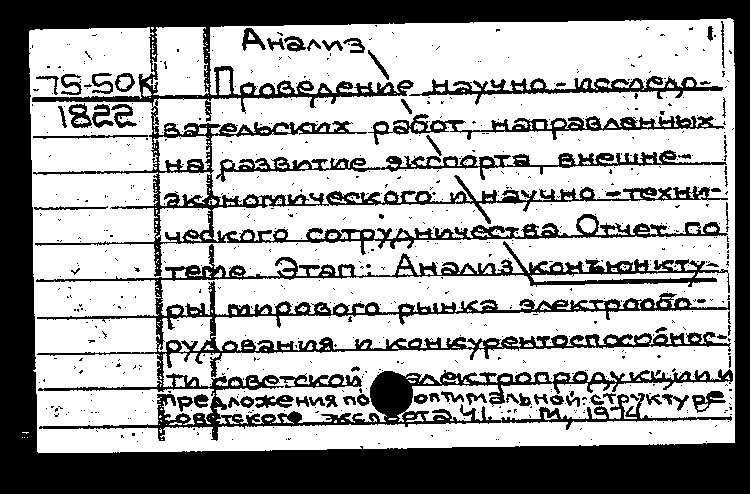 Анализ 1
75-50К Проведение научно-исследо-
1822 вательских работ, направленных
на развитие экспорта, внешне-
экономического и научно-техни-
ческого сотрудничества. Отчет по
теме. Этап: Анализ конъюнкту-
ры мирового рынка электрообо-
рудования и конкурентоспособнос-
ти советской электропродукции и
предложения по оптимальной структуре
советского экспорта. Ч1. М, 1974.